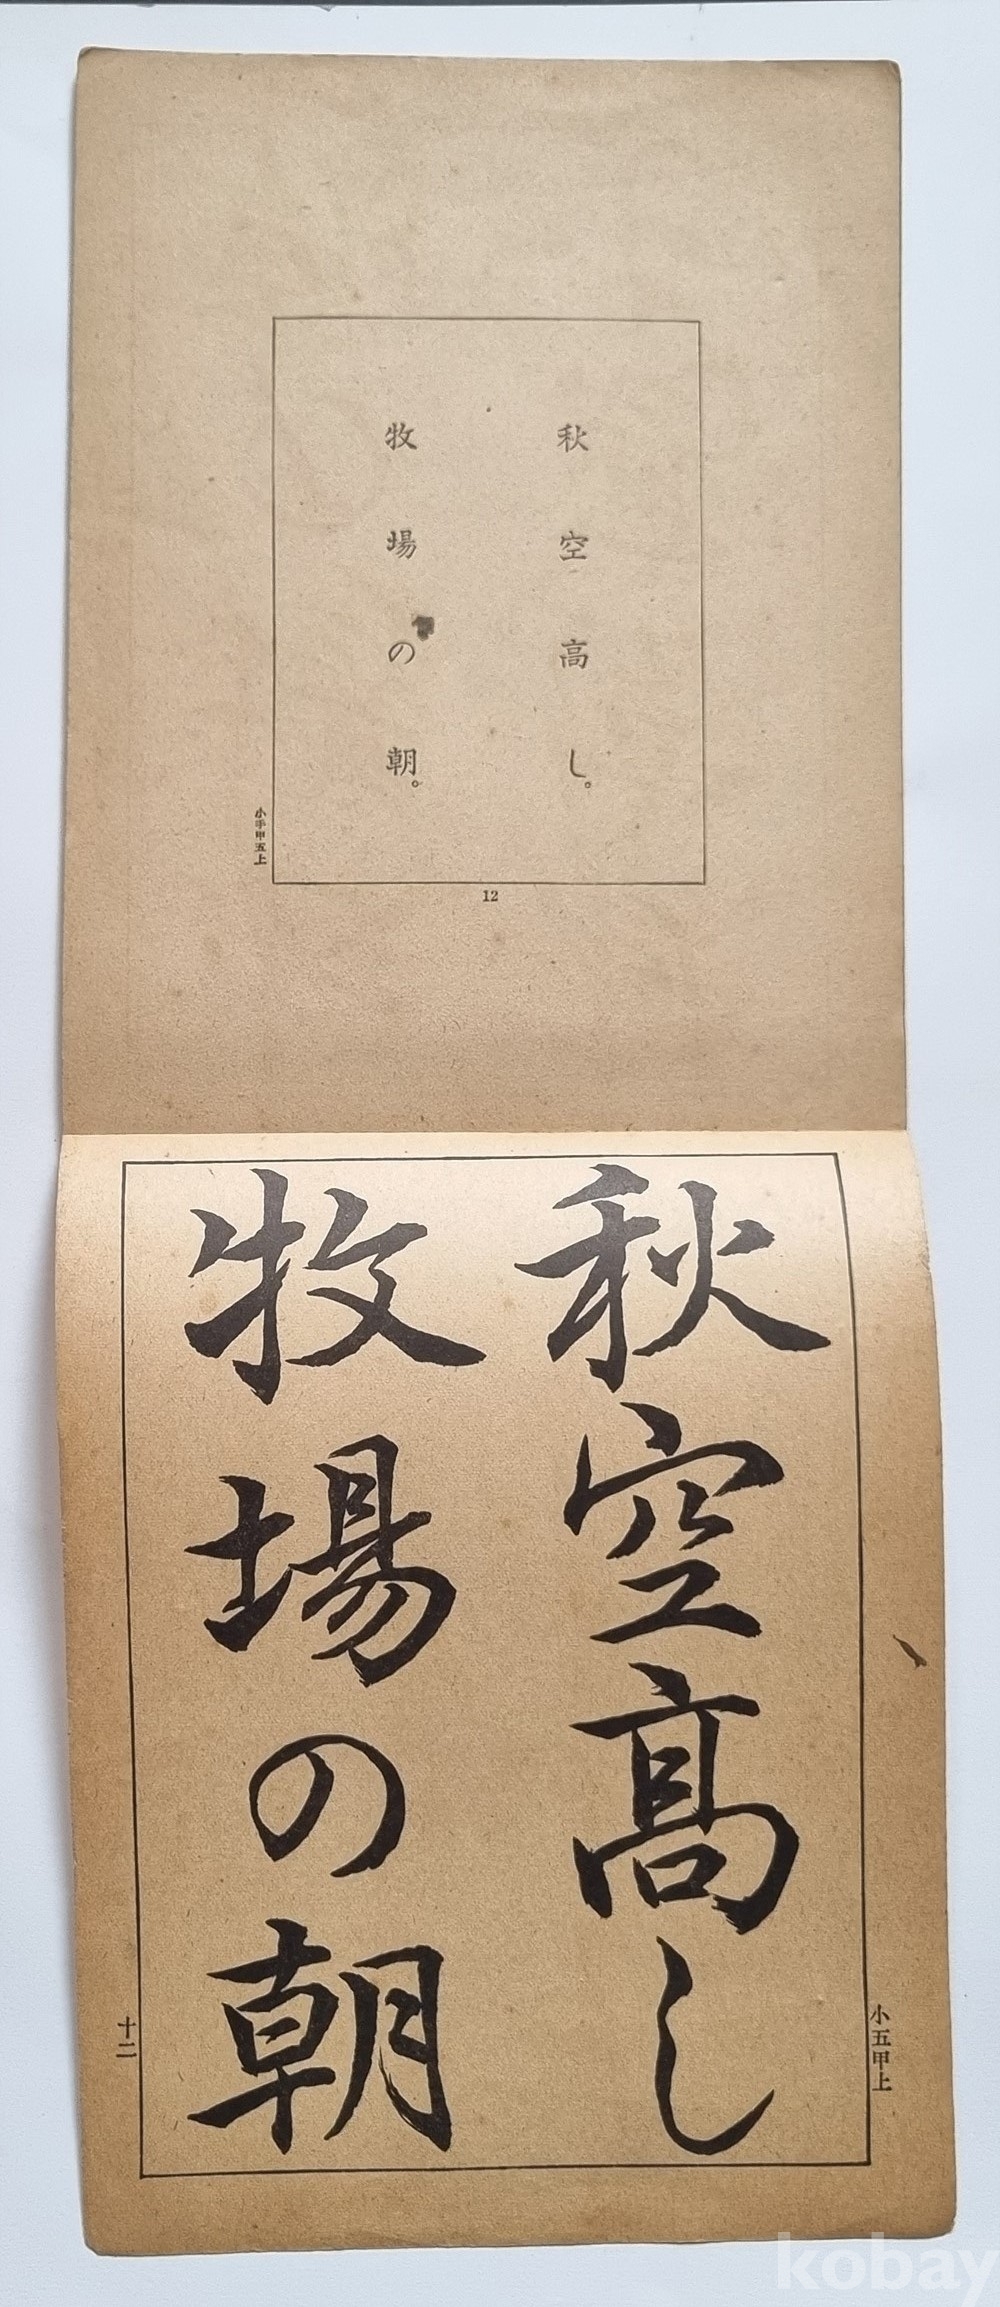 秋空高し。
牧場の朝。
小手甲五上
12
小五甲上
秋空高し
牧場の朝
十二
kobay